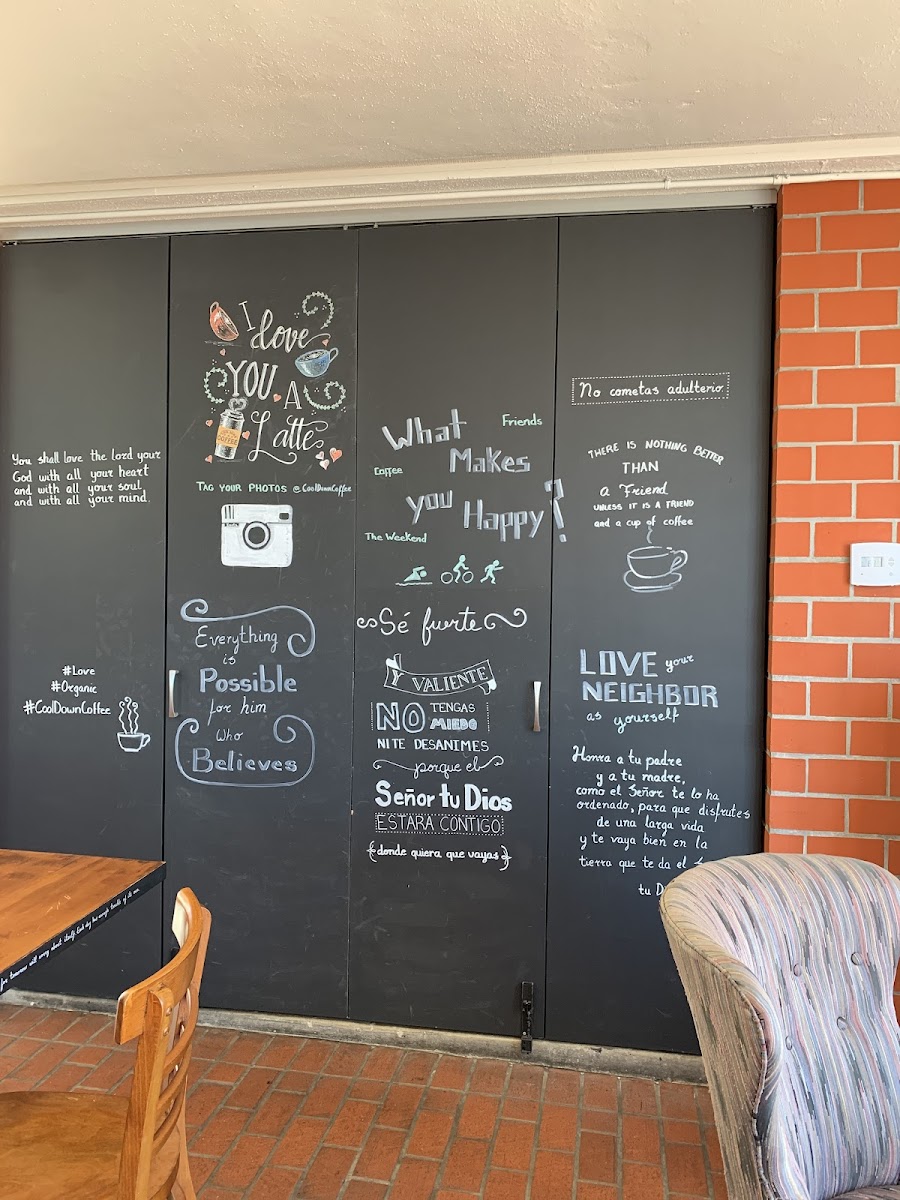 You shall love the lord your
God with all your heart
and with all your soul,
and with all your mind.
#Love
#Organic
#CoolDownCoffee
I
love
YOU
A
Latte
COFFEE
TAG YOUR PHOTOS @CoolDownCoffee
Everything
is
Possible
for him
Who
Believes
What
Friends
Makes
Coffee
you
Happy?
The Weekend
Sé fuerte
Y VALIENTE
NO TENGAS
MIEDO
NI TE DESANIMES
porque el
Señor tu Dios
ESTARA CONTIGO
donde quiera que vayas
No cometas adulterio.
THERE IS NOTHING BETTER
THAN
a Friend
UNLESS IT IS A FRIEND
and a cup of coffee
LOVE your
NEIGHBOR
as yourself
Honra a tu padre
y a tu madre,
como el Señor te lo ha
ordenado, para que disfrutes
de una larga vida
y te vaya bien en la
tierra que te da el
tu
for tomorrow will worry about itself. Each day has enough trouble of its own.